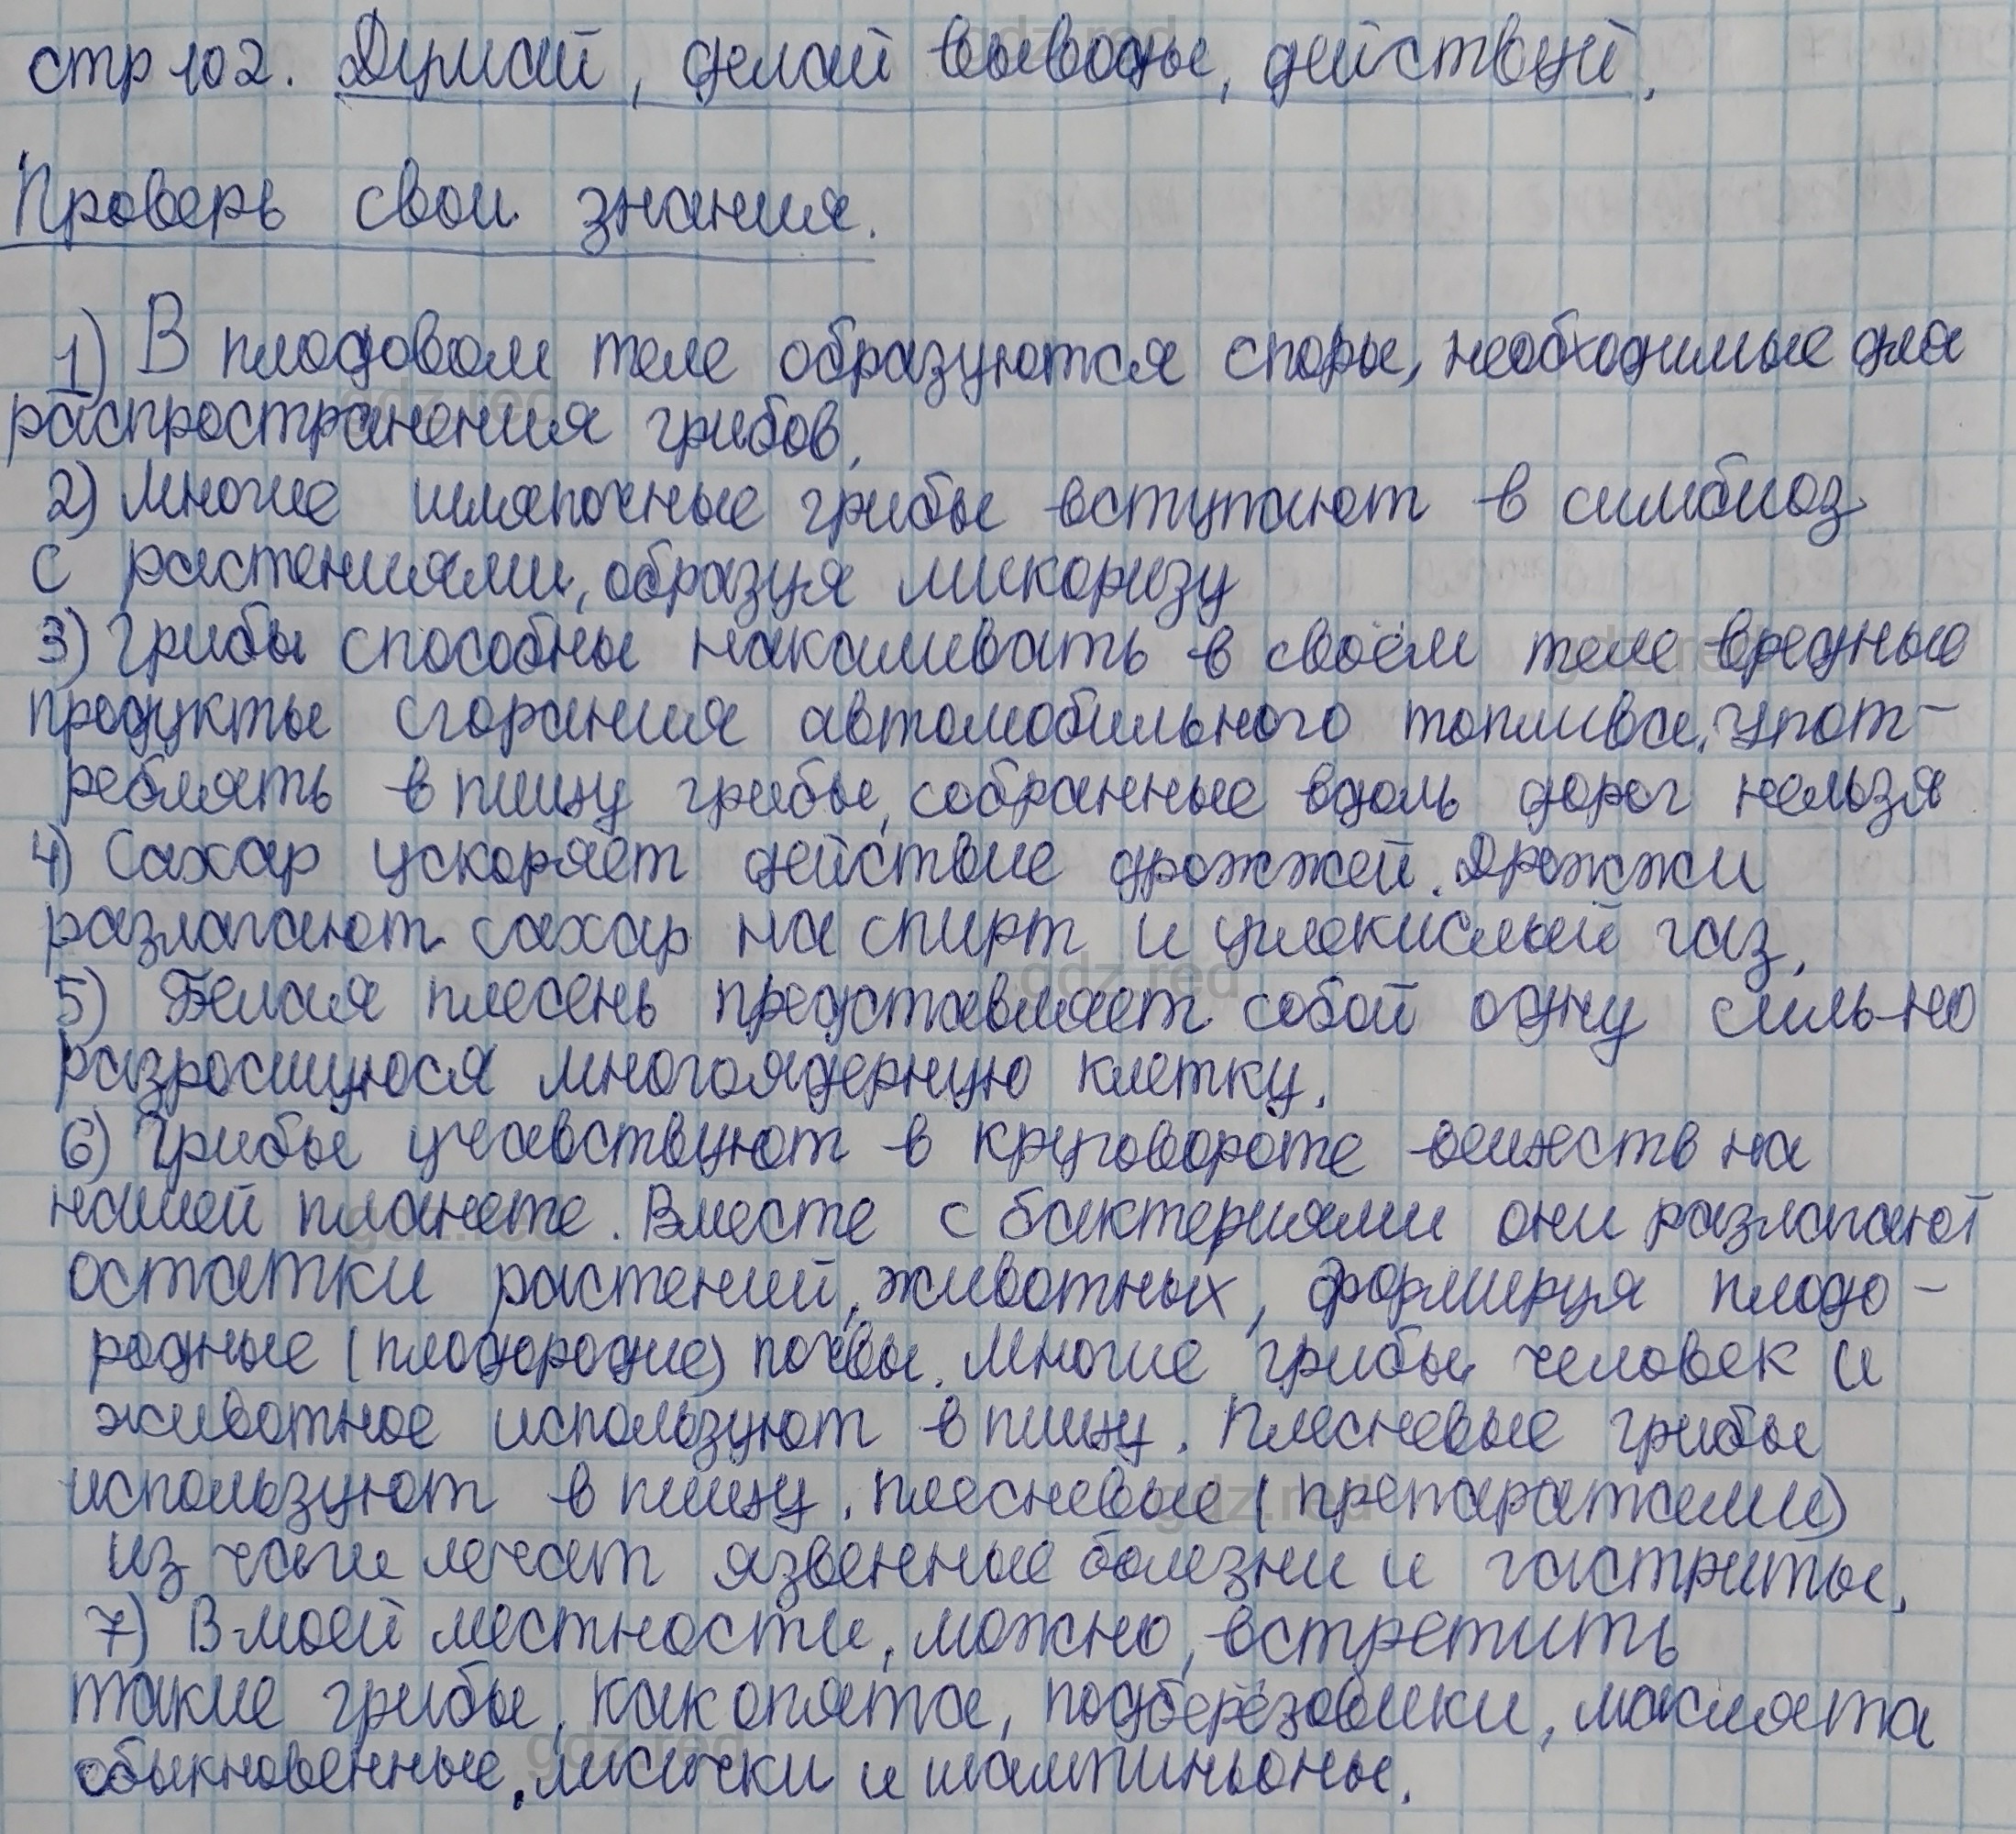 стр 102. Думай, делай выводы, действуй.
Проверь свои знания.
1) В плодовом теле образуются споры, необходимые для
распространения грибов.
2) Многие шляпочные грибы вступают в симбиоз
с растениями, образуя микоризу
3) Грибы способны накапливать в своём теле вредные
продукты сгорания автомобильного топлива. Упот-
реблять в пищу грибы, собранные вдоль дорог нельзя
4) Сахар ускоряет действие дрожжей. Дрожжи
разлагают сахар на спирт и углекислый газ.
5) Белая плесень представляет собой одну сильно
разросшуюся многоядерную клетку.
6) Грибы учавствуют в круговороте веществ на
нашей планете. Вместе с бактериями они разлагают
остатки растений, животных, формируя плодо-
родные (плодородие) почвы. Многие грибы человек и
животное используют в пищу. Плесневые грибы
используют в пищу. плесневые (препаратами)
из чаги лечат язвенные болезни и гастриты.
7) В моей местности, можно, встретить
такие грибы, как опята, подберёзовики, маслята
обыкновенные, лисички и шампиньоны.
gdz.red
gdz.red
gdz.red
gdz.red
gdz.red
gdz.red
gdz.red